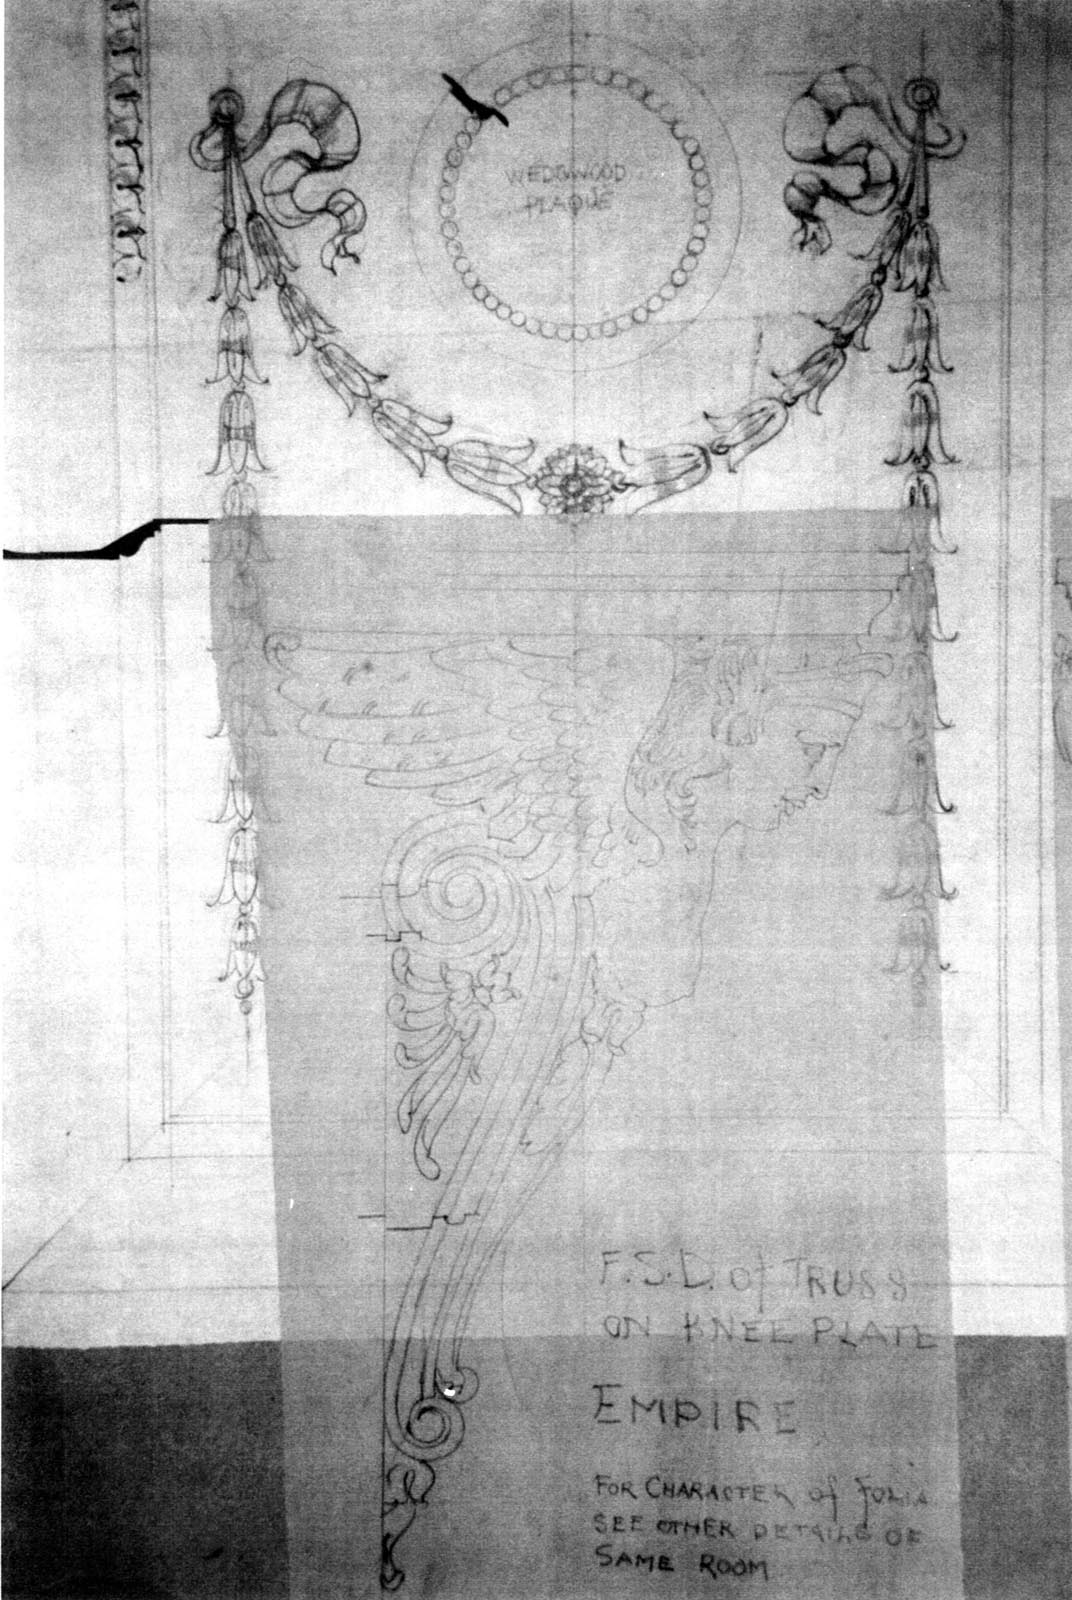 WEDGWOOD
PLAQUE
F.S.D. of TRUSS
ON KNEE PLATE
EMPIRE
FOR CHARACTER of
SEE OTHER DETAILS OF
SAME ROOM